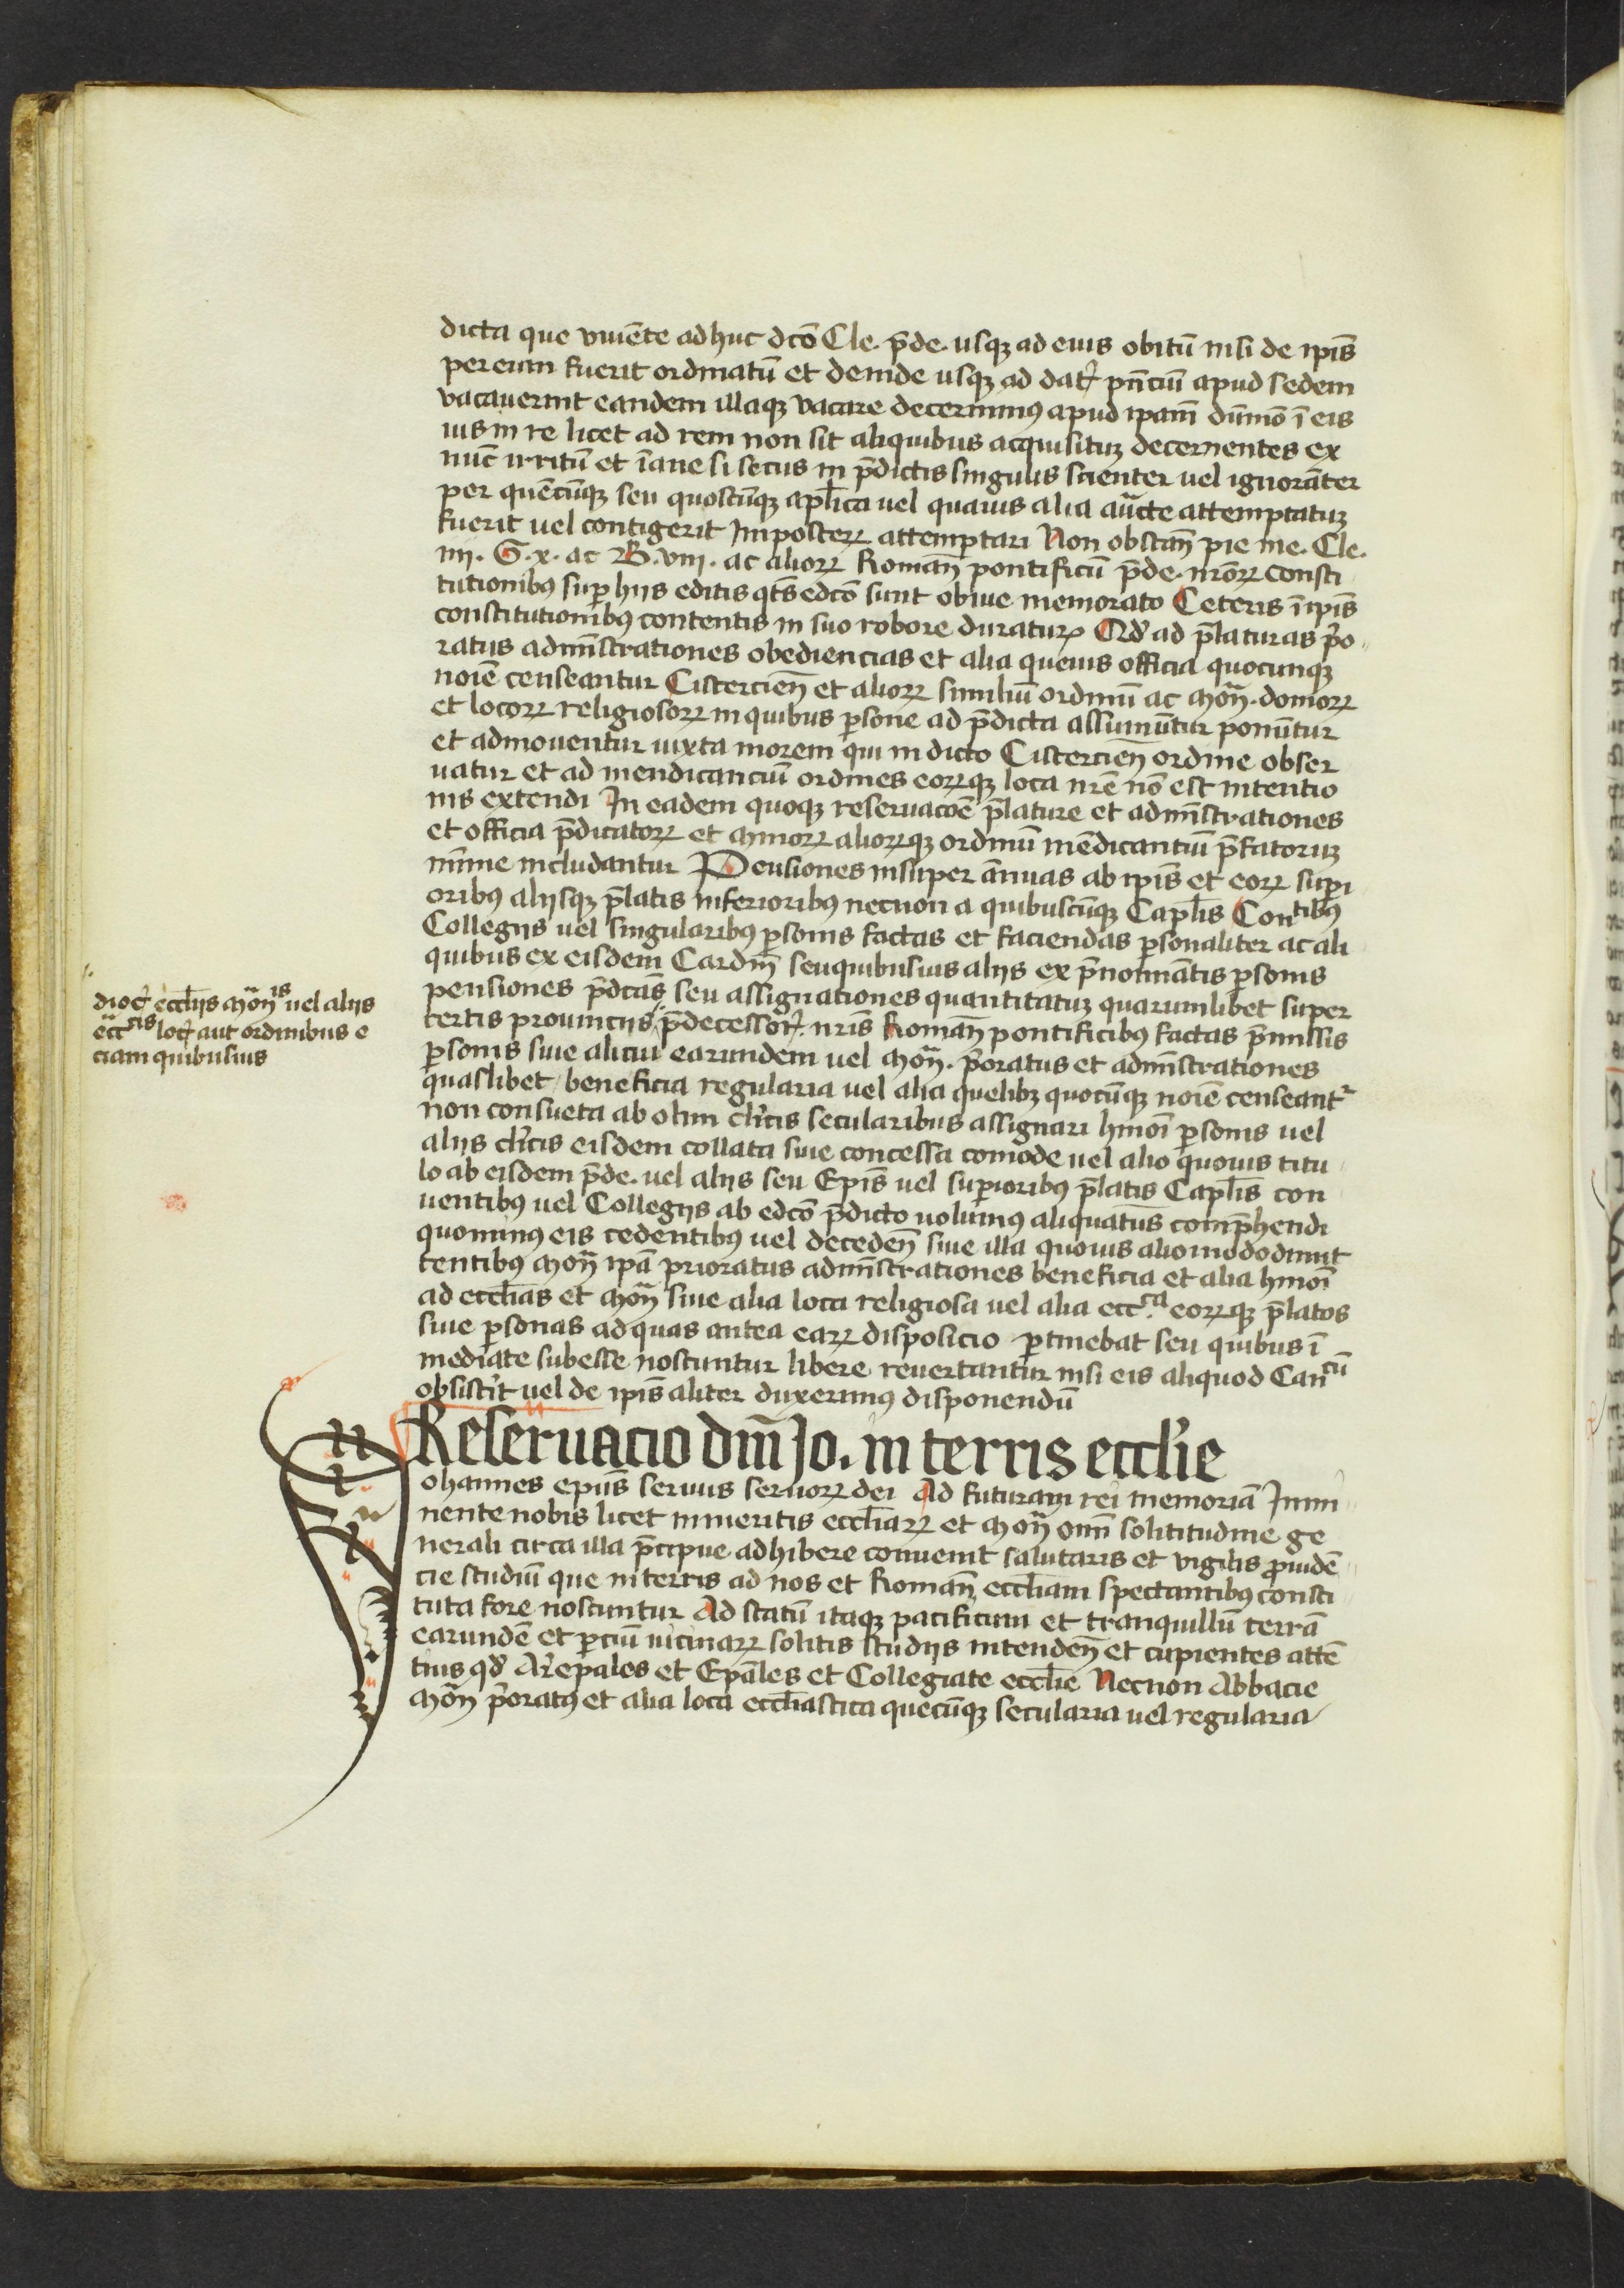 dicta que viuēte adhuc dc̄o Cle. p̄de. usqꝫ ad eius obitū nisi de ip̄is
per eum fuerit ordinatū et deinde usqꝫ ad dat̄ pn̄ciū apud sedem
vacauerint eandem illaqꝫ vacare decernimꝰ apud ipam̄ dūmō ī eis
ius in re licet ad rem non sit aliquibus acquisitūꝫ decernentes ex
nūc irritū et īane si secus in p̄dictis singulis scienter uel ignorāter
per quēcūqꝫ seu quoscūqꝫ apl̄ica uel quauis alia aūcte attemptatuꝫ
fuerit uel contigerit Imposteꝝ attemptari Non obstan̄ pie me. Cle.
iiij. G. x. ac B. viij. ac alioꝝ Roman̄ pontificū p̄de. nr̄oꝝ consti
tutionibꝰ sup̄ hijs editis qt̄s edc̄o sunt obiue memorato Ceteris ī ip̄is
constitutionibꝰ contentis in suo robore duraturꝭ Qd̓ ad p̄laturas p̓o
ratus admīstrationes obediencias et alia queuis officia quocunqꝫ
noīe censeantur Cistercien̄ et alioꝝ similiū ordinū ac Mon̄. domoꝝ
et locoꝝ religiosoꝝ in quibus ꝑsone ad p̄dicta assumūtur ponūtur
et admouentur iuxta morem qui in dicto Cistercien̄ ordine obser
uatur et ad mendicanciū ordines eoꝝqꝫ loca nr̄e nō est intentio
nis extendi In eadem quoqꝫ reseruacōe p̄lature et admīstrationes
et officia p̄dicatoꝝ et Minoꝝ alioꝝqꝫ ordinū mēdicantiū p̄fatoruꝫ
mīme includantur Pensiones insuper ānuas ab ip̄is et eoꝝ supi
oribꝰ alijsqꝫ p̄latis inferioribꝰ necnon a quibuscūqꝫ Capl̄is Contibꝰ
Collegijs uel singularibꝰ ꝑsonis factas et faciendas ꝑsonaliter ac ali
quibus ex eisdem Cardin̄ seu quibusuis alijs ex p̄noīnatis ꝑsonis
pensiones p̄dc̄as seu assignationes quantitatuꝫ quarumlibet super
certis prouincijs p̄decessoꝝ nr̄is Roman̄ pontificibꝰ factas p̄missis
ꝑsonis siue alicui earundem uel Mon̄. p̓oratus et admīstrationes
quaslibet beneficia regularia uel alia quelibꝫ quocūqꝫ noīe censeantr
non consueta ab olim cl̓icis secularibus assignari hmōi ꝑsonis uel
alijs cl̓icis eisdem collata siue concessa comode uel alio quouis titu
lo ab eisdem p̄de. uel alijs seu Ep̄is uel sup̄ioribꝰ p̄latis Capl̄is con
uentibꝰ uel Collegijs ab edc̄o p̄dicto uolumꝰ aliquaten̄s comp̄hendi
quominꝰ eis cedentibꝰ uel deceden̄ siue illa quouis alio modo dimit
tentibꝰ Mon̄ ip̄a prioratus admīstrationes beneficia et alia hmōi
ad eccl̄ias et Mon̄ siue alia loca religiosa uel alia ecc.ca eoꝝqꝫ p̄latos
siue ꝑsonas ad quas antea eaꝝ disposicio ꝑtinebat seu quibus ī
mediate subesse noscuntur libere reuertantur nisi eis aliquod Cancū
obsistit uel de ip̄is aliter duxerimꝰ disponendū
dioc̄ eccl̄ijs Mon̄is uel alijs
eccīs loc̄ aut ordinibus e
ciam quibusuis
Reseruacio dn̄i Jo. in terris eccl̄ie
Johannes ep̄us seruus seruoꝝ dei Ad futuram rei memoriā Immi
nente nobis licet inmeritis eccl̄iaꝝ et Mon̄ om̄i solicitudine ge
nerali circa illa p̄cipue adhibere conuenit salutaris et vigilis ꝓuidē
cie studiū que in terris ad nos et Roman̄ eccl̄iam spectantibꝰ consti
tuta fore noscuntur Ad statū itaqꝫ pacificum et tranquillū terrā
earundē et ꝑciū uicinaꝝ solitis studijs intenden̄ et cupientes attē
tius qd̓ Ar̓epales et Epāles et Collegiate eccl̄ie Necnon Abbacie
Mon̄ p̓oratꝰ et alia loca eccl̄iastica quecūqꝫ secularia uel regularia